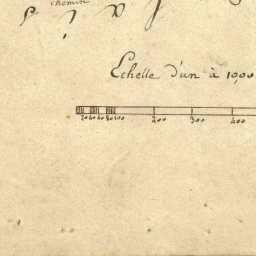 chemin
Echelle d'un à 10,00
20 40 60 80 100 200 300 400